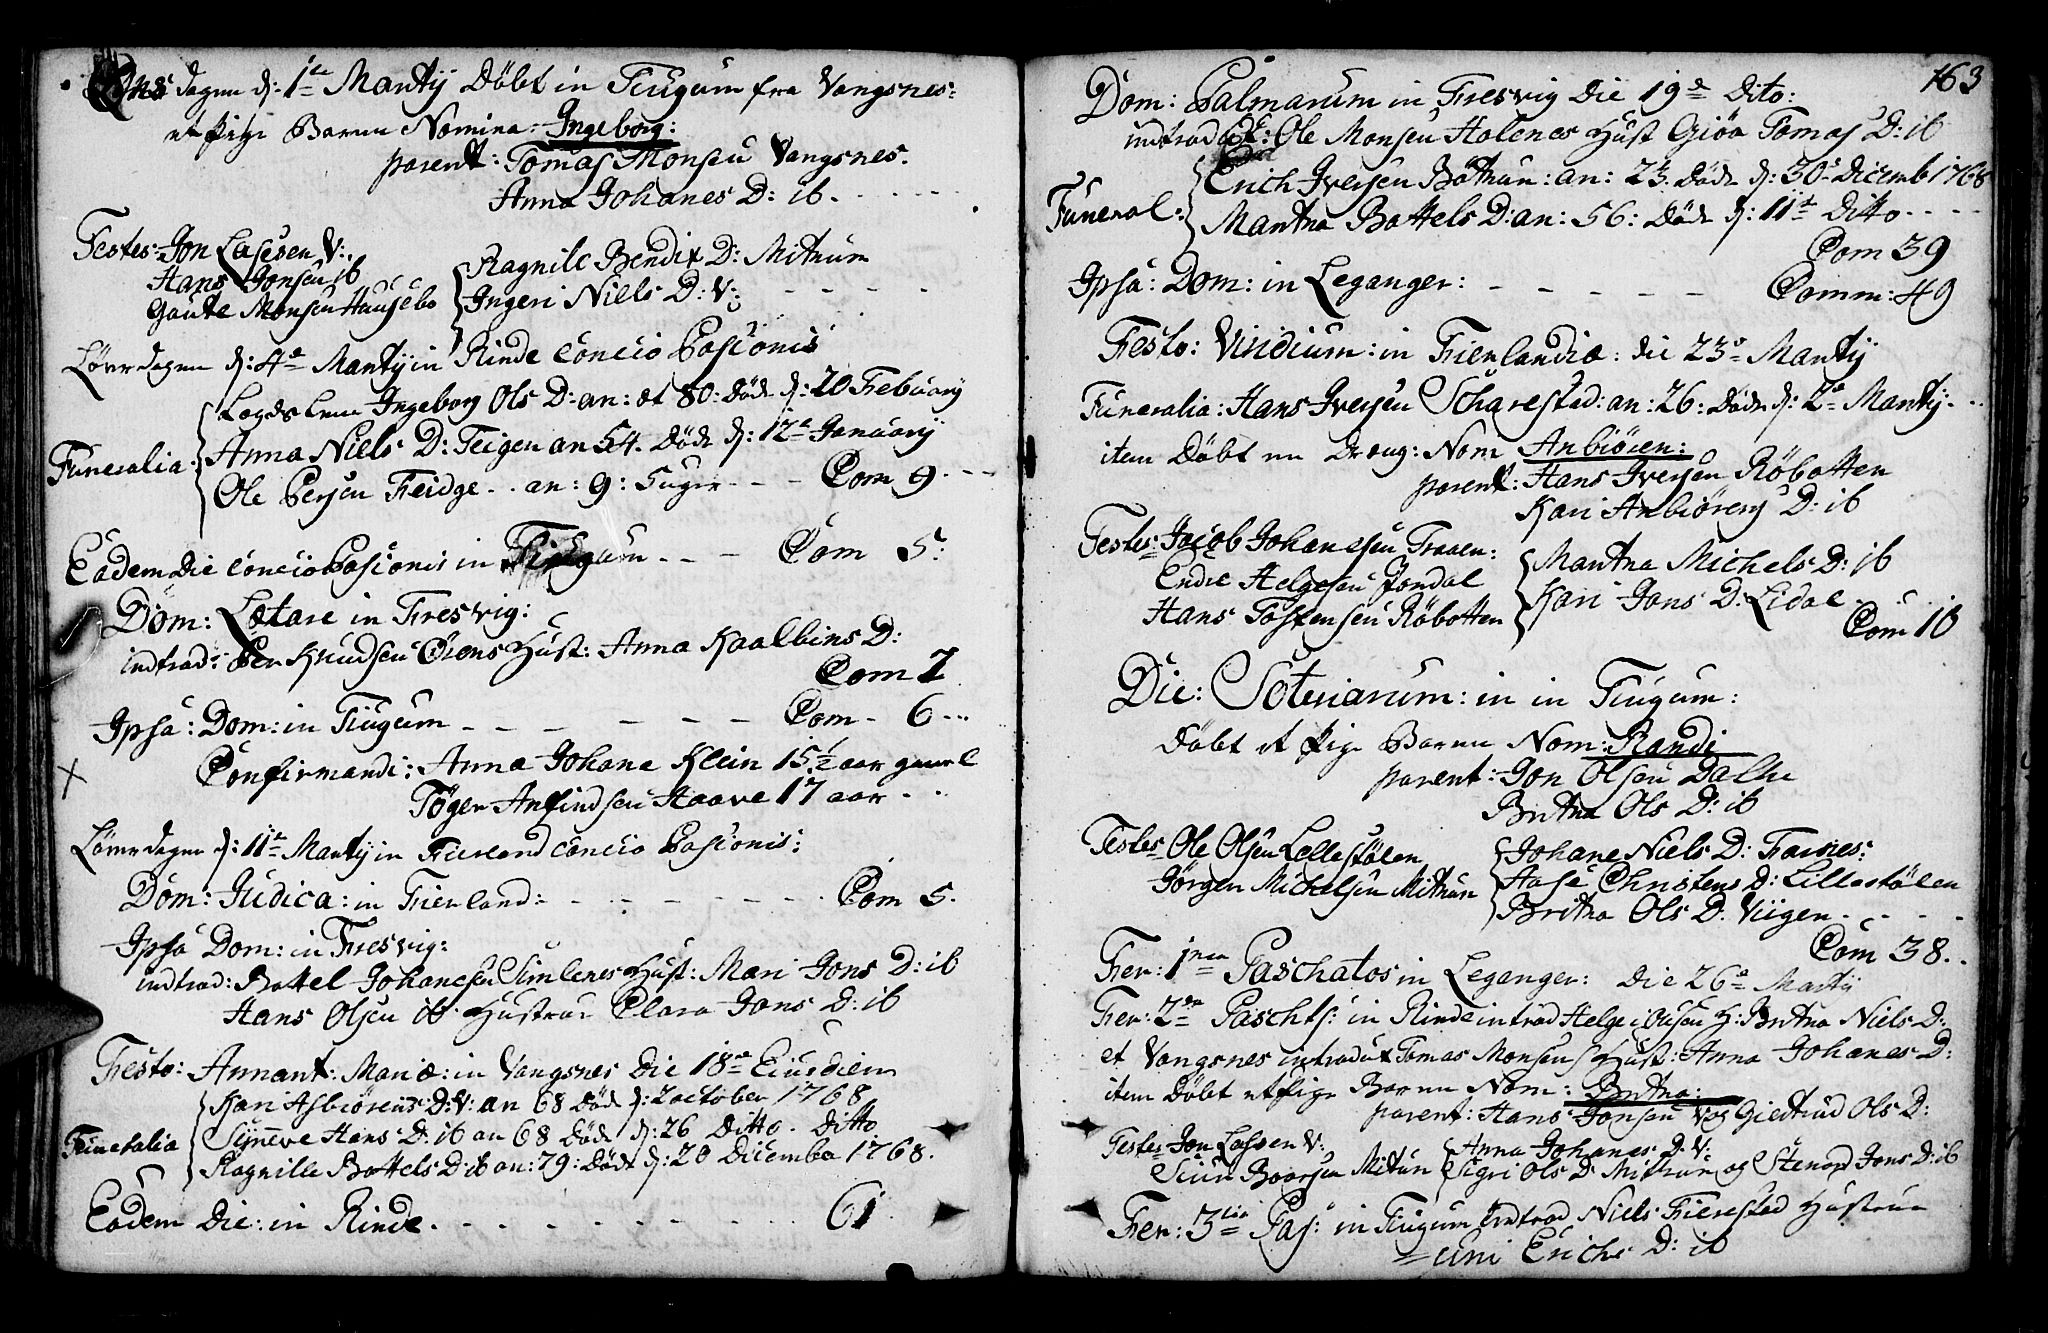 Ons dagen d: 1te Martij Døbt in Tiugum fra Vangsnes:
et Pige Barnn Nomina: Ingeborg:
parent: Tomas Monsen Vangsnes.
Anna Johanes D: ib.
Testes: Jon Lassen V:
Hans Jonsen ib
Gaute Monsen Hausebo
Ragnile Bendix D: Mitrum
Ingeri Niels D: V:
Løverdagen d: 4de Martij in Rinde concio Pasionis
Funeralia:
Legdslem Ingeborg Ols D: an: æt 80: døde d: 20 Februarij
Anna Niels D: Teigen an 54. døde d: 12te Januarij
Ole Persen Feidge - - an: 9: - - - Com 9 - - -
Eadem Die concio Pasionis in Tiugum - - - Com 5:
Dom: Lætare in Fresvig:
indrod: Per Knudsen Øiens Hust: Anna Kaalbins D:
Com 7
Ipsa: Dom: in Tiugum - - - - - - Com - 6 - - -
Confirmandi: Anna Johane Klein 15½ aar gammel
Tøger Anfindsen Haave 17 aar - -
Løverdagen d: 11te Martij in Fierland concio Pasionis:
Dom: Judica: in Fierland: - - - - - - - - Com 5.
Ipsa Dom: in Fresvig:
indrod: Battel Johanesen Simlenes Hust: Mari Jons D: ib
Hans Olsen ib Hustrue Clara Jons D: ib
Festo: Annant: Mariæ: in Vangsnes Die 18de Eiusdiem
Funeralia
Kari Asbiørens D: V: an 68 Død d: 2 october 1768
Sÿneve Hans D: ib an 68 Døde d: 26 Ditto. Ditto
Ragnille Battels D: ib an: 79: Døde d: 20 Dicembe 1768.
Eadem Die: in Rinde. - - - - - - - - - 61
163
Dom: Palmarum in Fresvig Die 19de Dito:
indrod Ole Monsen Holenes Hust Giøa Tomas D: ib
Funeral:
Erich Iversen Bøtrun: an: 23. Døde d: 30te Dicemb 1768
Martna Battels D: an: 56: Døde d: 11te Ditto - - - -
Com 39
Ipsa: Dom: in Leganger: - - - - - Comm: 49
Festo: Viridium: in Fierlandia: die 23de Martij
Funeralia: Hans Iversen Scharestad: an: 26: døde d: 2de Martij - - -
item Døbt en Dreng: Nom Anbiören:
parent: Hans Iversen Røbotten
Kari Anbiörens D: ib
Testes Jacob Johanesen Traaen:
Endre Helgesen Jordal
Hans Tostensen Røbotten
Martna Michels D: ib
Kari Jons D: Lidal
Com 10
Die: Soteriarum: in in Tiugum:
Døbt et Pige Barnn Nom: Randi
parent: Jon Olsen Dalhe
Britna Ols D: ib
Testes Ole Olsen Lellestølen
Jørgen Michelsen Mitrun
Johane Niels D: Farnes:
Aase Christens D: Lillestølen
Britna Ols D. Viigen - - - -
Com 38. .
Fer: 1ma Paschatos in Leganger: Die 26de Martij
Fer: 2da Paschts: in Rinde introd Helge H: Britna Niels D:
et Vangsnes introdux Tomas Monsens Hust: Anna Johanes D:
item Døbt et Pige Barnn Nom: Britna:
parent: Hans Jonsen V og Giertrud Ols D:
Testes Jon Lassen V:
Siur Baarsen Mitun
Anna Johanes D: V:
Sigri Ols D: Mitrum og Jons D: ib
Fer: 3tia Pas: in Tiugum Indrod Niels Fierestad Hustrue
= uni Erichs D: ib